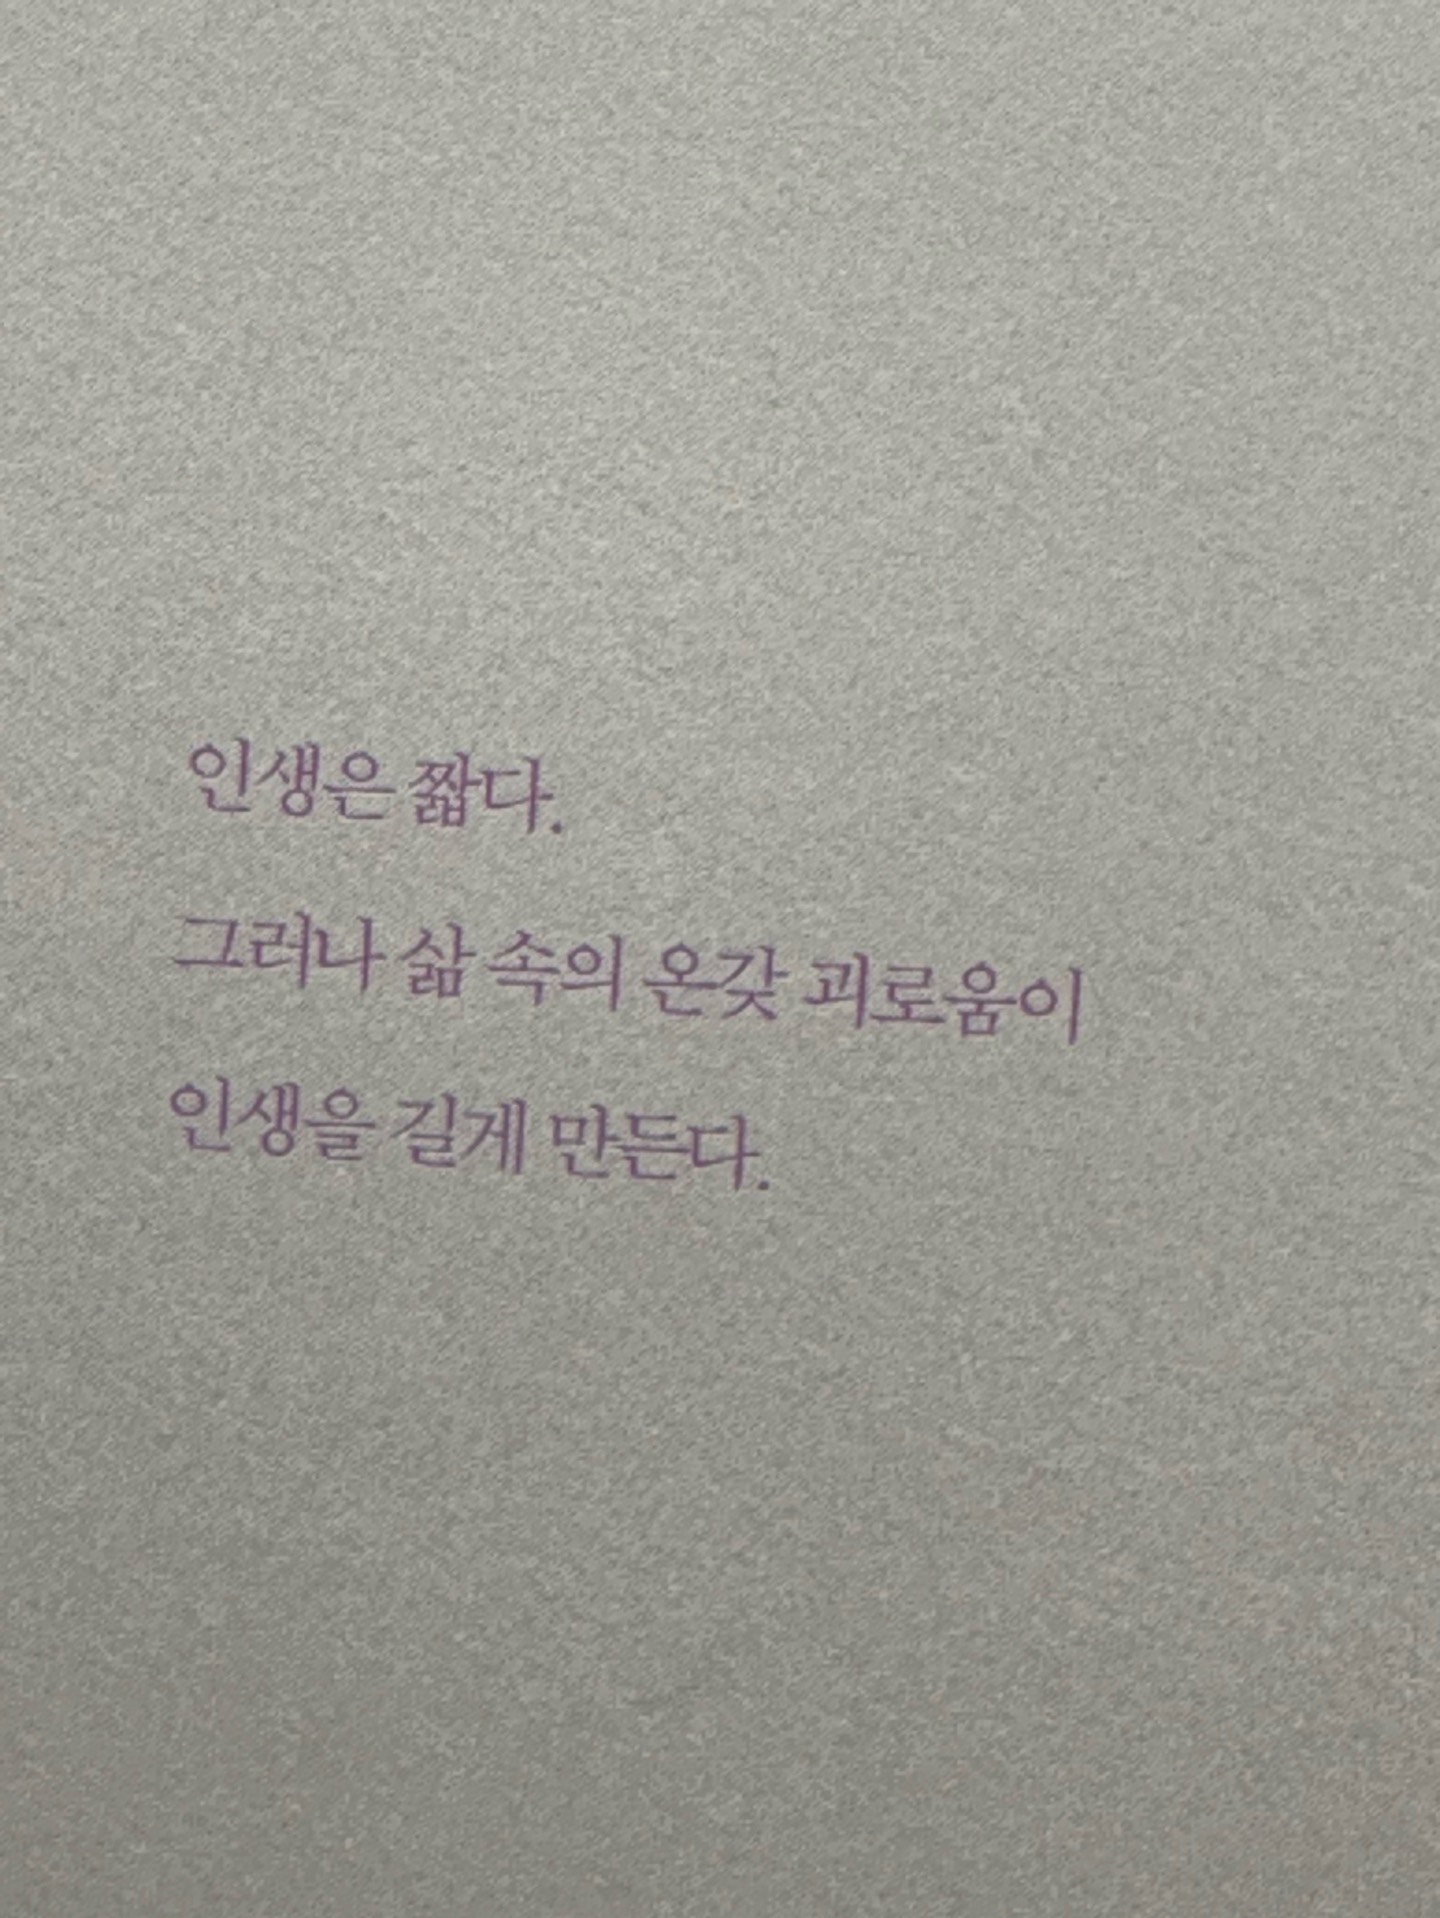 인생은 짧다.
그러나 삶 속의 온갖 괴로움이
인생을 길게 만든다.